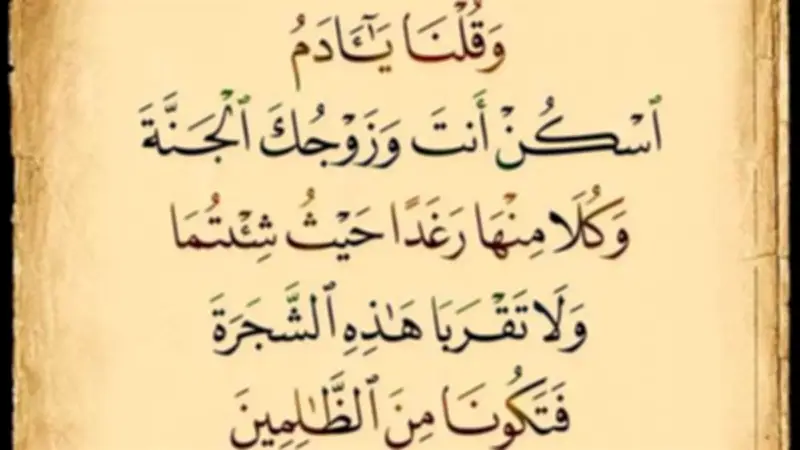 وَقُلْنَا يَـٰٓـَٔادَمُ
ٱسْكُنْ أَنتَ وَزَوْجُكَ ٱلْجَنَّةَ
وَكُلَا مِنْهَا رَغَدًا حَيْثُ شِئْتُمَا
وَلَا تَقْرَبَا هَـٰذِهِ ٱلشَّجَرَةَ
فَتَكُونَا مِنَ ٱلظَّـٰلِمِينَ